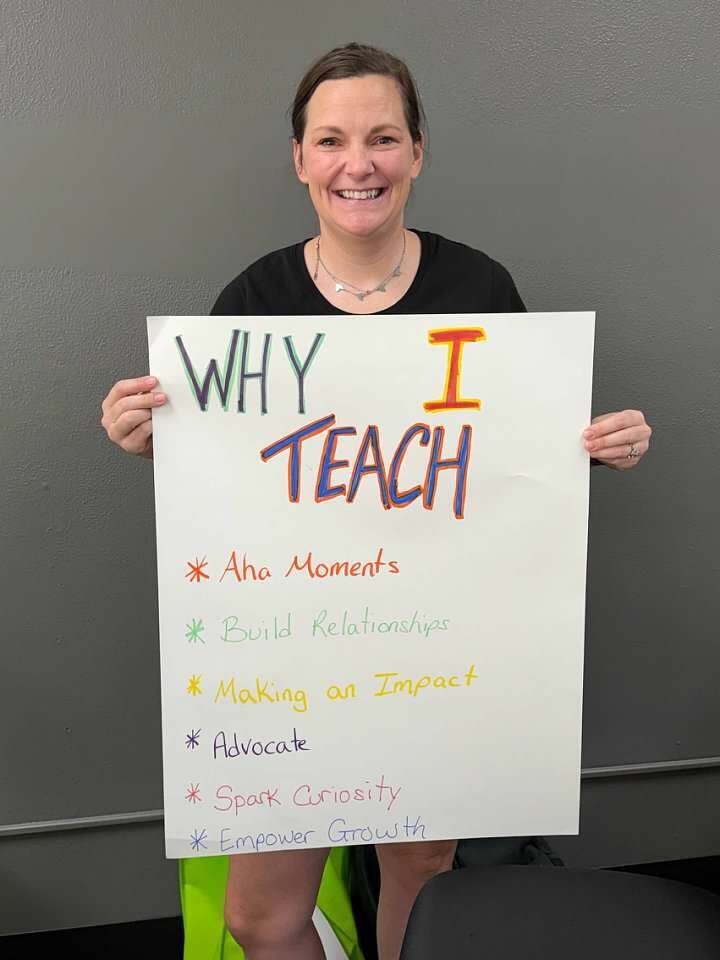 WHY I
TEACH
* Aha Moments
* Build Relationships
* Making an Impact
* Advocate
* Spark Curiosity
* Empower Growth